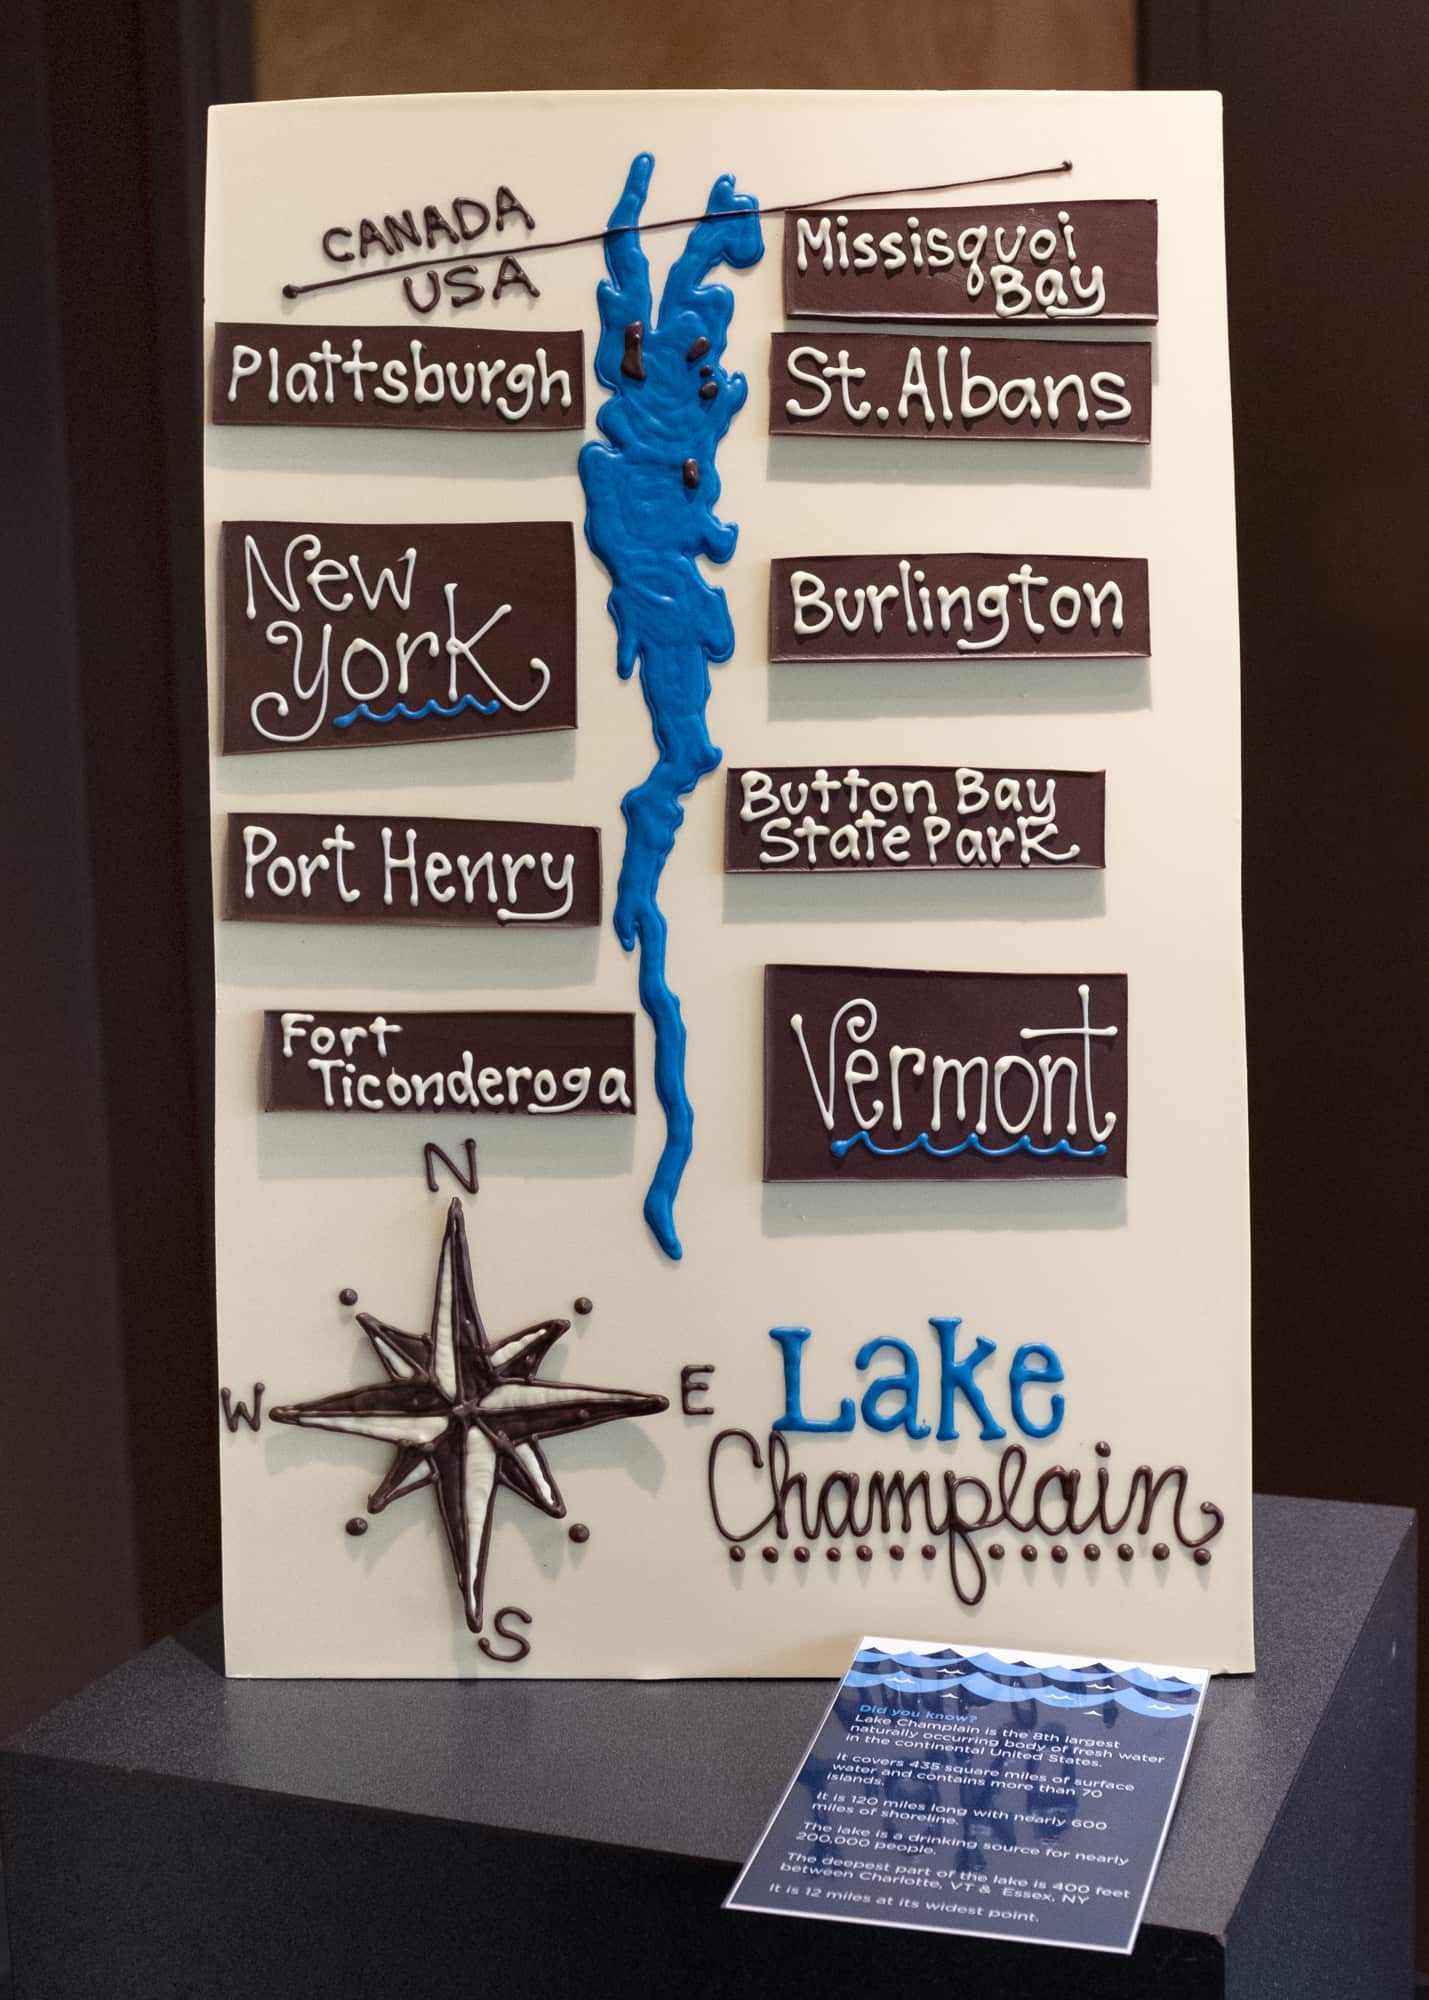 CANADA
USA
Missisquoi
Bay
Plattsburgh
St. Albans
New
York
Burlington
Button Bay
State Park
Port Henry
Vermont
Fort
Ticonderoga
N
W
E
S
Lake
Champlain
Did you know?
Lake Champlain is the 8th largest
naturally occurring body of fresh water
in the continental United States.
It covers 435 square miles of surface
water and contains more than 70
islands.
It is 120 miles long with nearly 600
miles of shoreline.
The lake is a drinking source for nearly
200,000 people.
The deepest part of the lake is 400 feet
between Charlotte, VT & Essex, NY
It is 12 miles at its widest point.